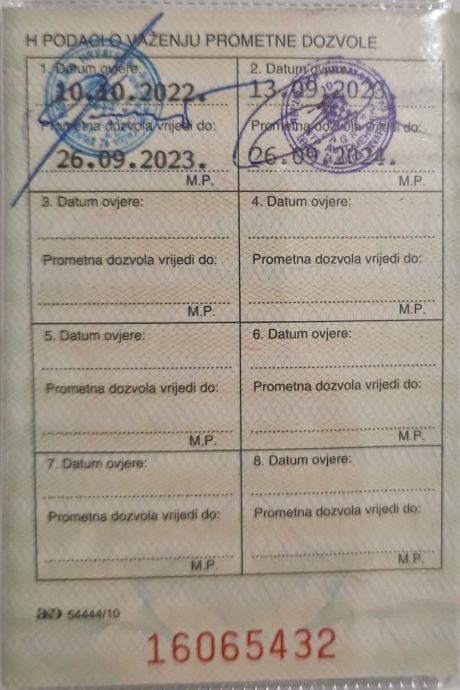 H PODACI O VAŽENJU PROMETNE DOZVOLE
1. Datum ovjere:
10.10.2022.
Prometna dozvola vrijedi do:
26.09.2023.
M.P.
2. Datum ovjere:
13.09.2023.
Prometna dozvola vrijedi do:
26.09.2024.
M.P.
3. Datum ovjere:
Prometna dozvola vrijedi do:
M.P.
4. Datum ovjere:
Prometna dozvola vrijedi do:
M.P.
5. Datum ovjere:
Prometna dozvola vrijedi do:
M.P.
6. Datum ovjere:
Prometna dozvola vrijedi do:
M.P.
7. Datum ovjere:
Prometna dozvola vrijedi do:
M.P.
8. Datum ovjere:
Prometna dozvola vrijedi do:
M.P.
54444/10
16065432